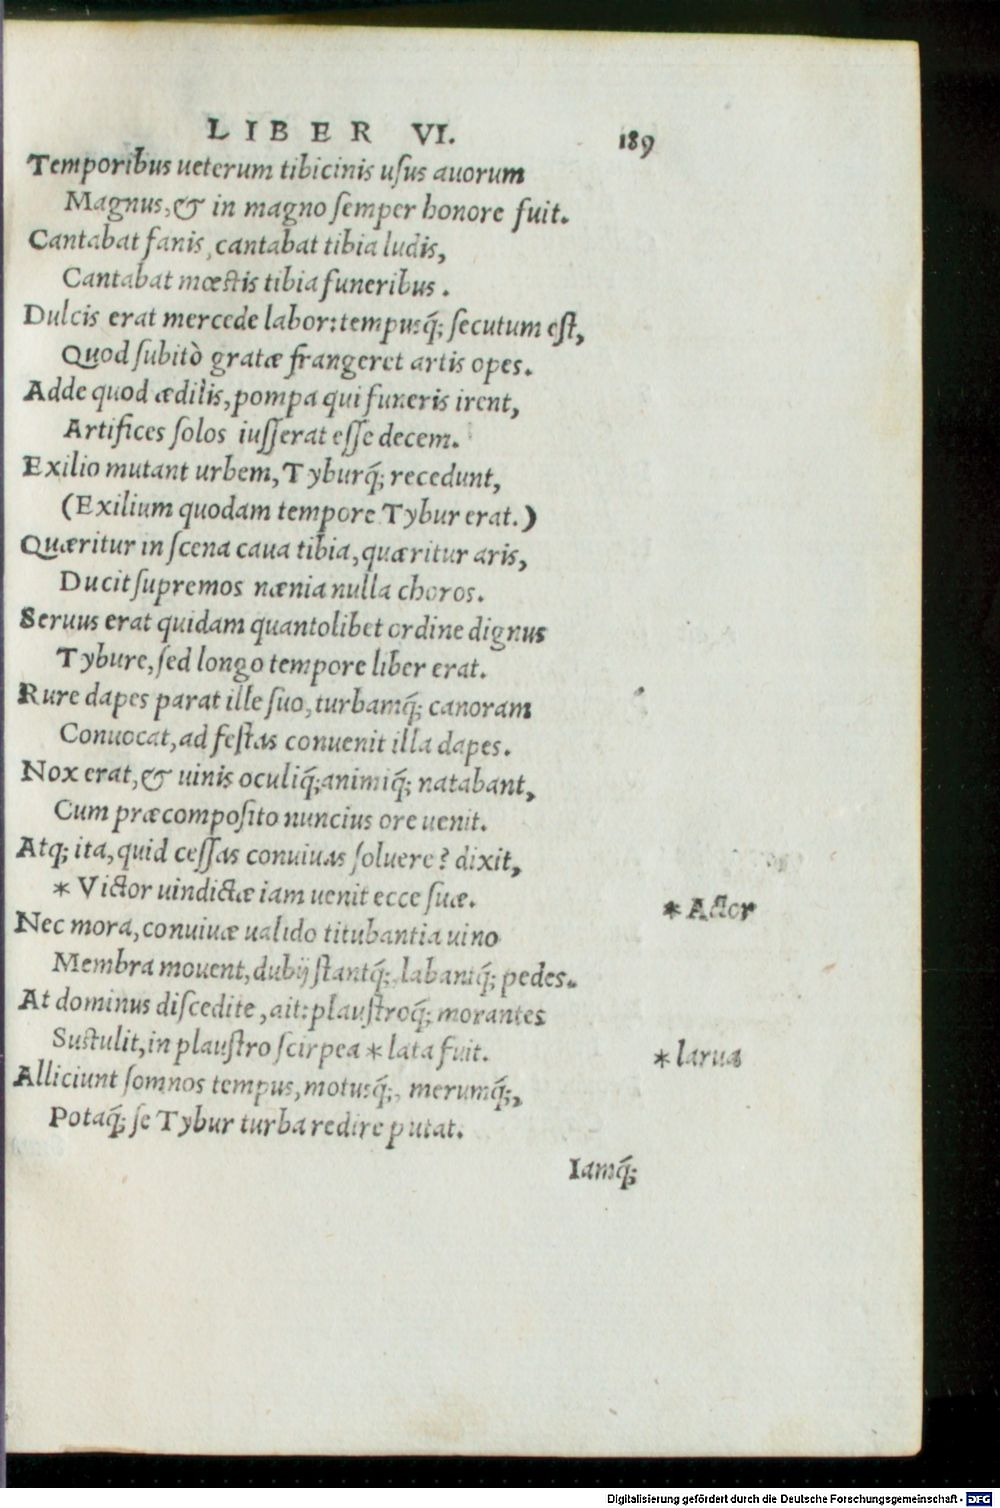 LIBER VI. 189
Temporibus ueterum tibicinis uſus auorum
Magnus, & in magno ſemper honore fuit.
Cantabat fanis, cantabat tibia ludis,
Cantabat mœſtis tibia funeribus.
Dulcis erat mercede labor: tempusq́; ſecutum eſt,
Quod ſubitò gratæ frangeret artis opes.
Adde quod ædilis, pompa qui funeris irent,
Artifices ſolos iuſſerat eſſe decem.
Exilio mutant urbem, Tyburq́; recedunt,
(Exilium quodam tempore Tybur erat.)
Quæritur in ſcena caua tibia, quæritur aris,
Ducit ſupremos nænia nulla choros.
Seruus erat quidam quantolibet ordine dignus
Tybure, ſed longo tempore liber erat.
Rure dapes parat ille ſuo, turbamq́; canoram
Conuocat, ad feſtas conuenit illa dapes.
Nox erat, & uinis oculiq́; animiq́; natabant,
Cum præcompoſito nuncius ore uenit.
Atq; ita, quid ceſſas conuiuas ſoluere? dixit,
* Victor uindictæ iam uenit ecce ſuæ. * Aƈtor
Nec mora, conuiuæ ualido titubantia uino
Membra mouent, dubij ſtantq́; labantq́; pedes.
At dominus diſcedite, ait: plauſtroq́; morantes
Suſtulit, in plauſtro ſcirpea * lata fuit. * larua
Alliciunt ſomnos tempus, motusq́;, merumq́;,
Potaq́; ſe Tybur turba redire putat.
Iamq́;
Digitalisierung gefördert durch die Deutsche Forschungsgemeinschaft - DFG